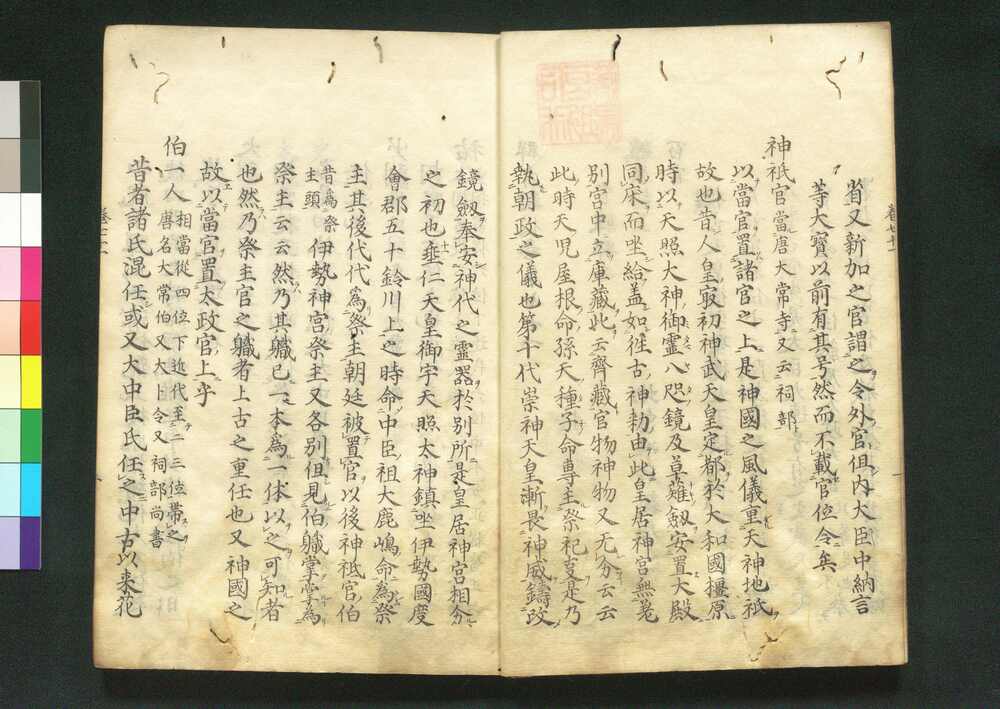 省又新加之官謂之令外官但内大臣中納言
等大寶以前有其号然而不載官位令矣
神祇官當唐大常寺又云祠部
以當官置諸官之上是神國之風儀重天神地祇
故也昔人皇最初神武天皇定都於大和國橿原
時以天照大神御霊八咫鏡及草薙劔安置大殿
同床而坐給盖如徃古神勅由此皇居神宮無差
別宮中立庫藏此云齊藏官物神物又无分云云
此時天児屋根命孫天種子命専主祭祀是乃
執朝政之儀也第十代崇神天皇漸畏神威鑄改
鏡劔奉安神代之霊器於別所是皇居神宮相分
之初也垂仁天皇御宇天照太神鎮坐伊勢國度
會郡五十鈴川上之時命中臣祖大鹿嶋命為祭
主其後代代為祭主朝廷被置官以後神祇官伯
昔為祭主頭伊勢神宮祭主又各別但見伯軄掌為
祭主云云然乃其軄已一本為一体以之可知者
也然乃祭主官之軄者上古之重任也又神國之
故以當官置太政官上乎
伯一人相當從四位下近代至二三位帶之唐名大常伯又大卜令又祠部尚書
昔者諸氏混任或又大中臣氏任之中古以来花